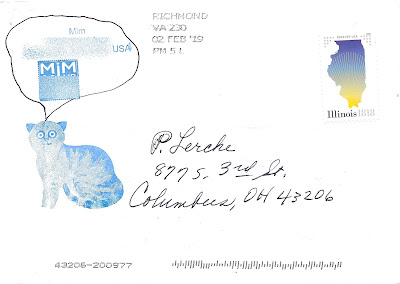 Mim
USA
MIM
RICHMOND
VA 230
02 FEB '19
PM 5 L
Illinois 1818
P. Lerche
877 S. 3rd St.
Columbus, OH 43206
43206-200977